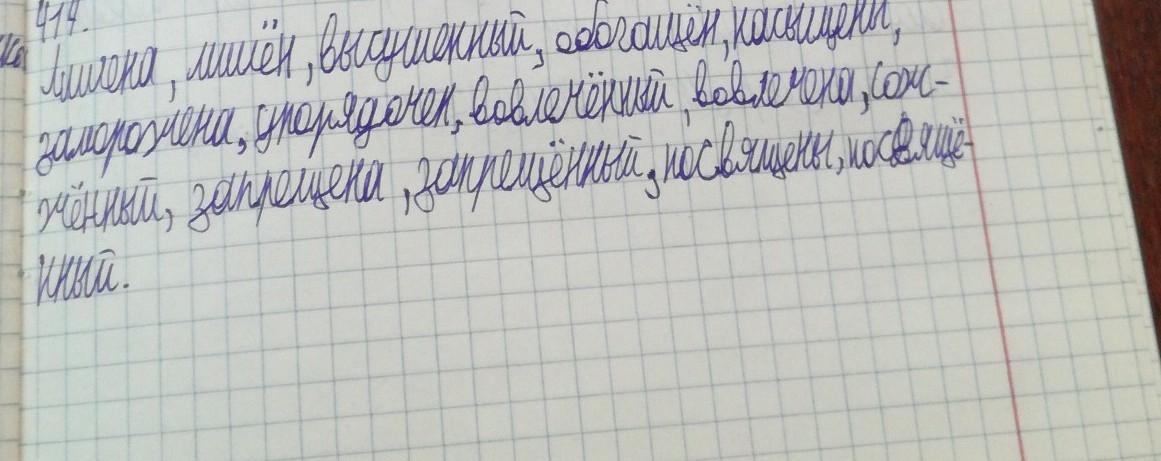 414.
Лишена, лишён, выдушенный, обогащён, насыщены,
заморожена, упорядочен, вовлечённый, вовлечена, сож-
жённый, запрещена, запрещённый, посвящены, посвящё-
нный.